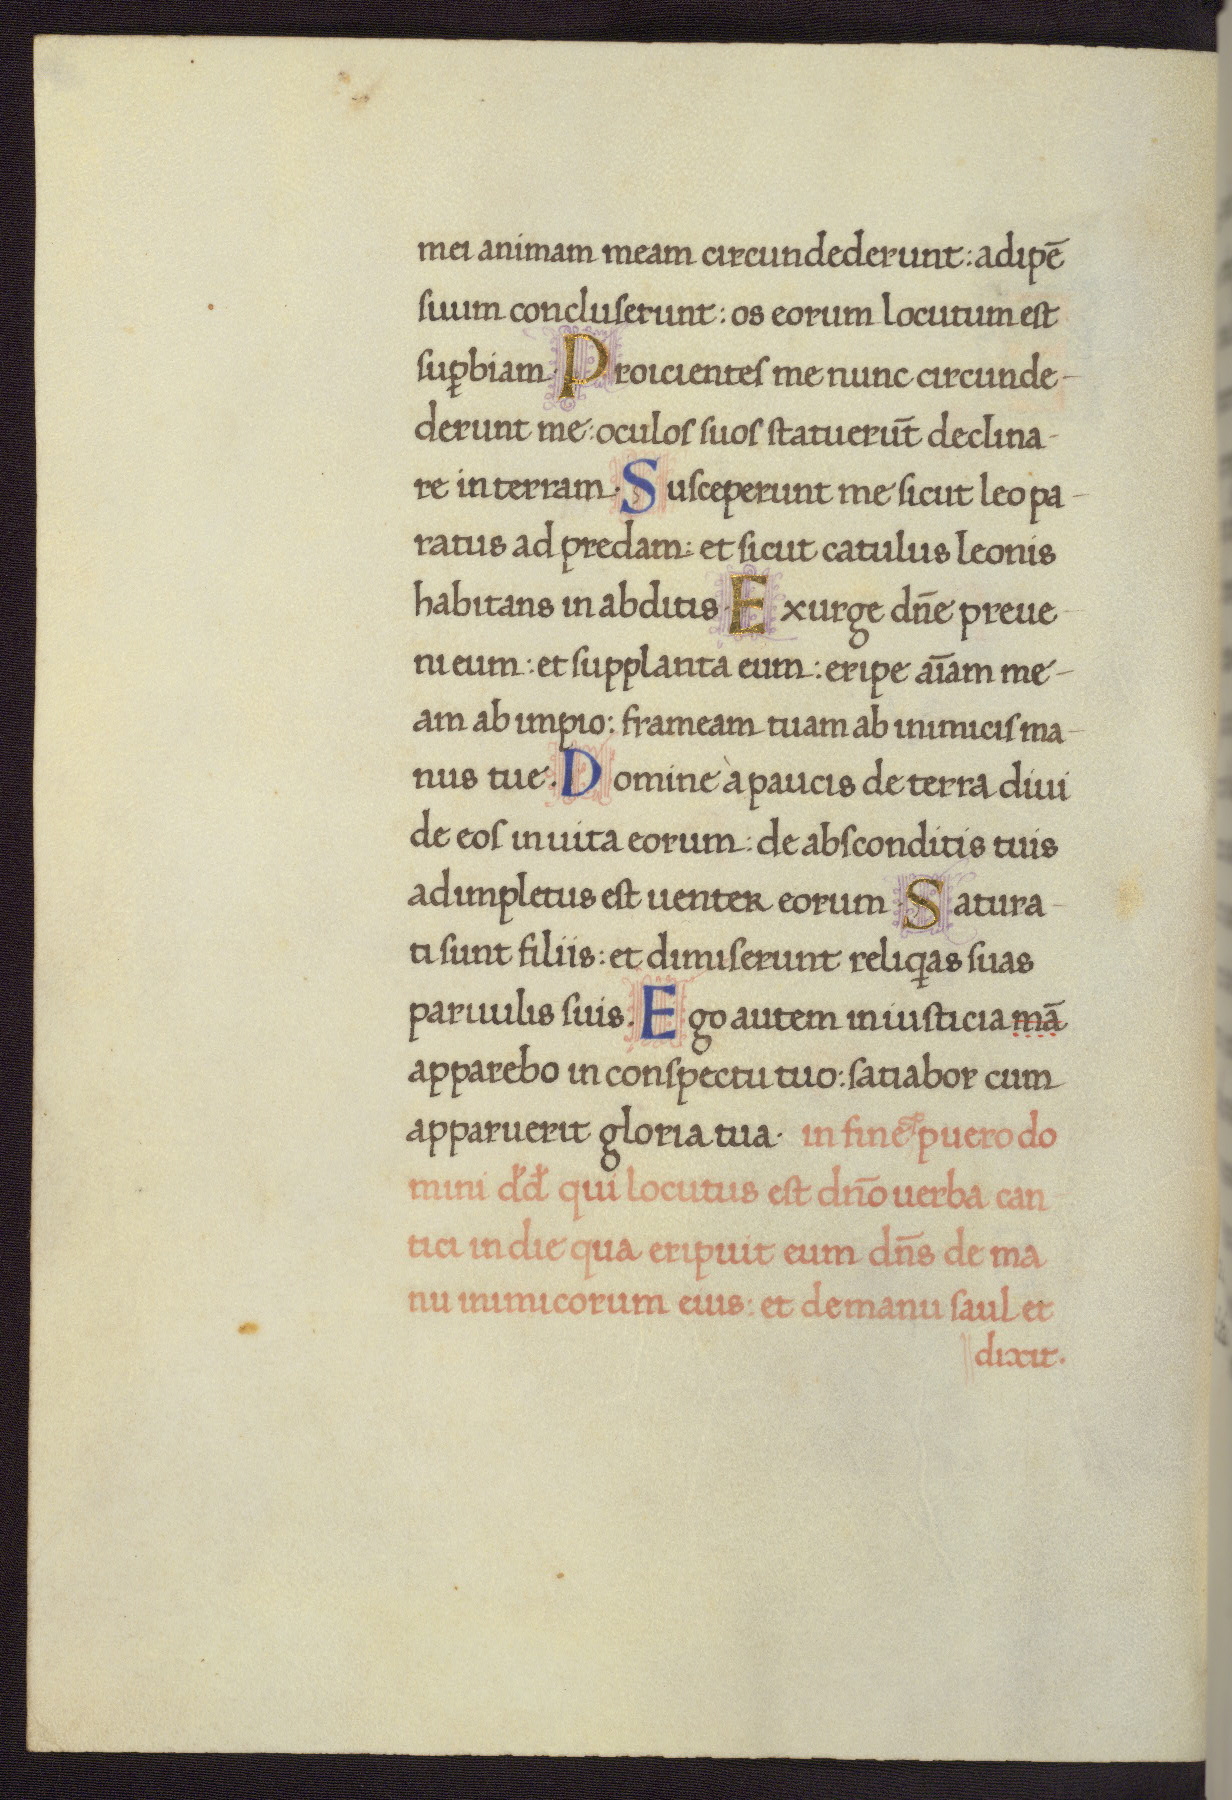 mei animam meam circundederunt: adipē
suum concluserunt: os eorum locutum est
suꝑbiam. Proicientes me nunc circunde-
derunt me: oculos suos statuerūt declina-
re in terram. Susceperunt me sicut leo pa-
ratus ad predam: et sicut catulus leonis
habitans in abditis. Exurge dn̄e preue-
ni eum: et supplanta eum: eripe aīam me-
am ab impio: frameam tuam ab inimicis ma-
nus tue. Domine à paucis de terra diui
de eos in uita eorum: de absconditis tuis
adimpletus est uenter eorum. Satura-
ti sunt filiis: et dimiserunt reliq̃as suas
paruulis suis. Ego autem in iusticia mā
apparebo in conspectu tuo: satiabor cum
apparuerit gloria tua. in fine puero do
mini dd̄ qui locutus est dn̄o uerba can-
tici in die qua eripuit eum dn̄s de ma
nu inimicorum eius: et de manu saul et
dixit.